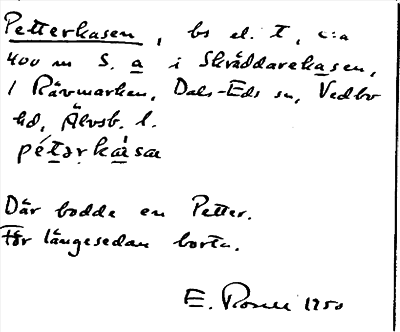 Petterkasen, bs el. t, c:a
400 m S. a i Skräddarekasen,
i Rävmarken, Dals-Eds sn, Vedbo
hd, Älvsb. l.
Där bodde en Petter.
För längesedan borta.
E. 1950